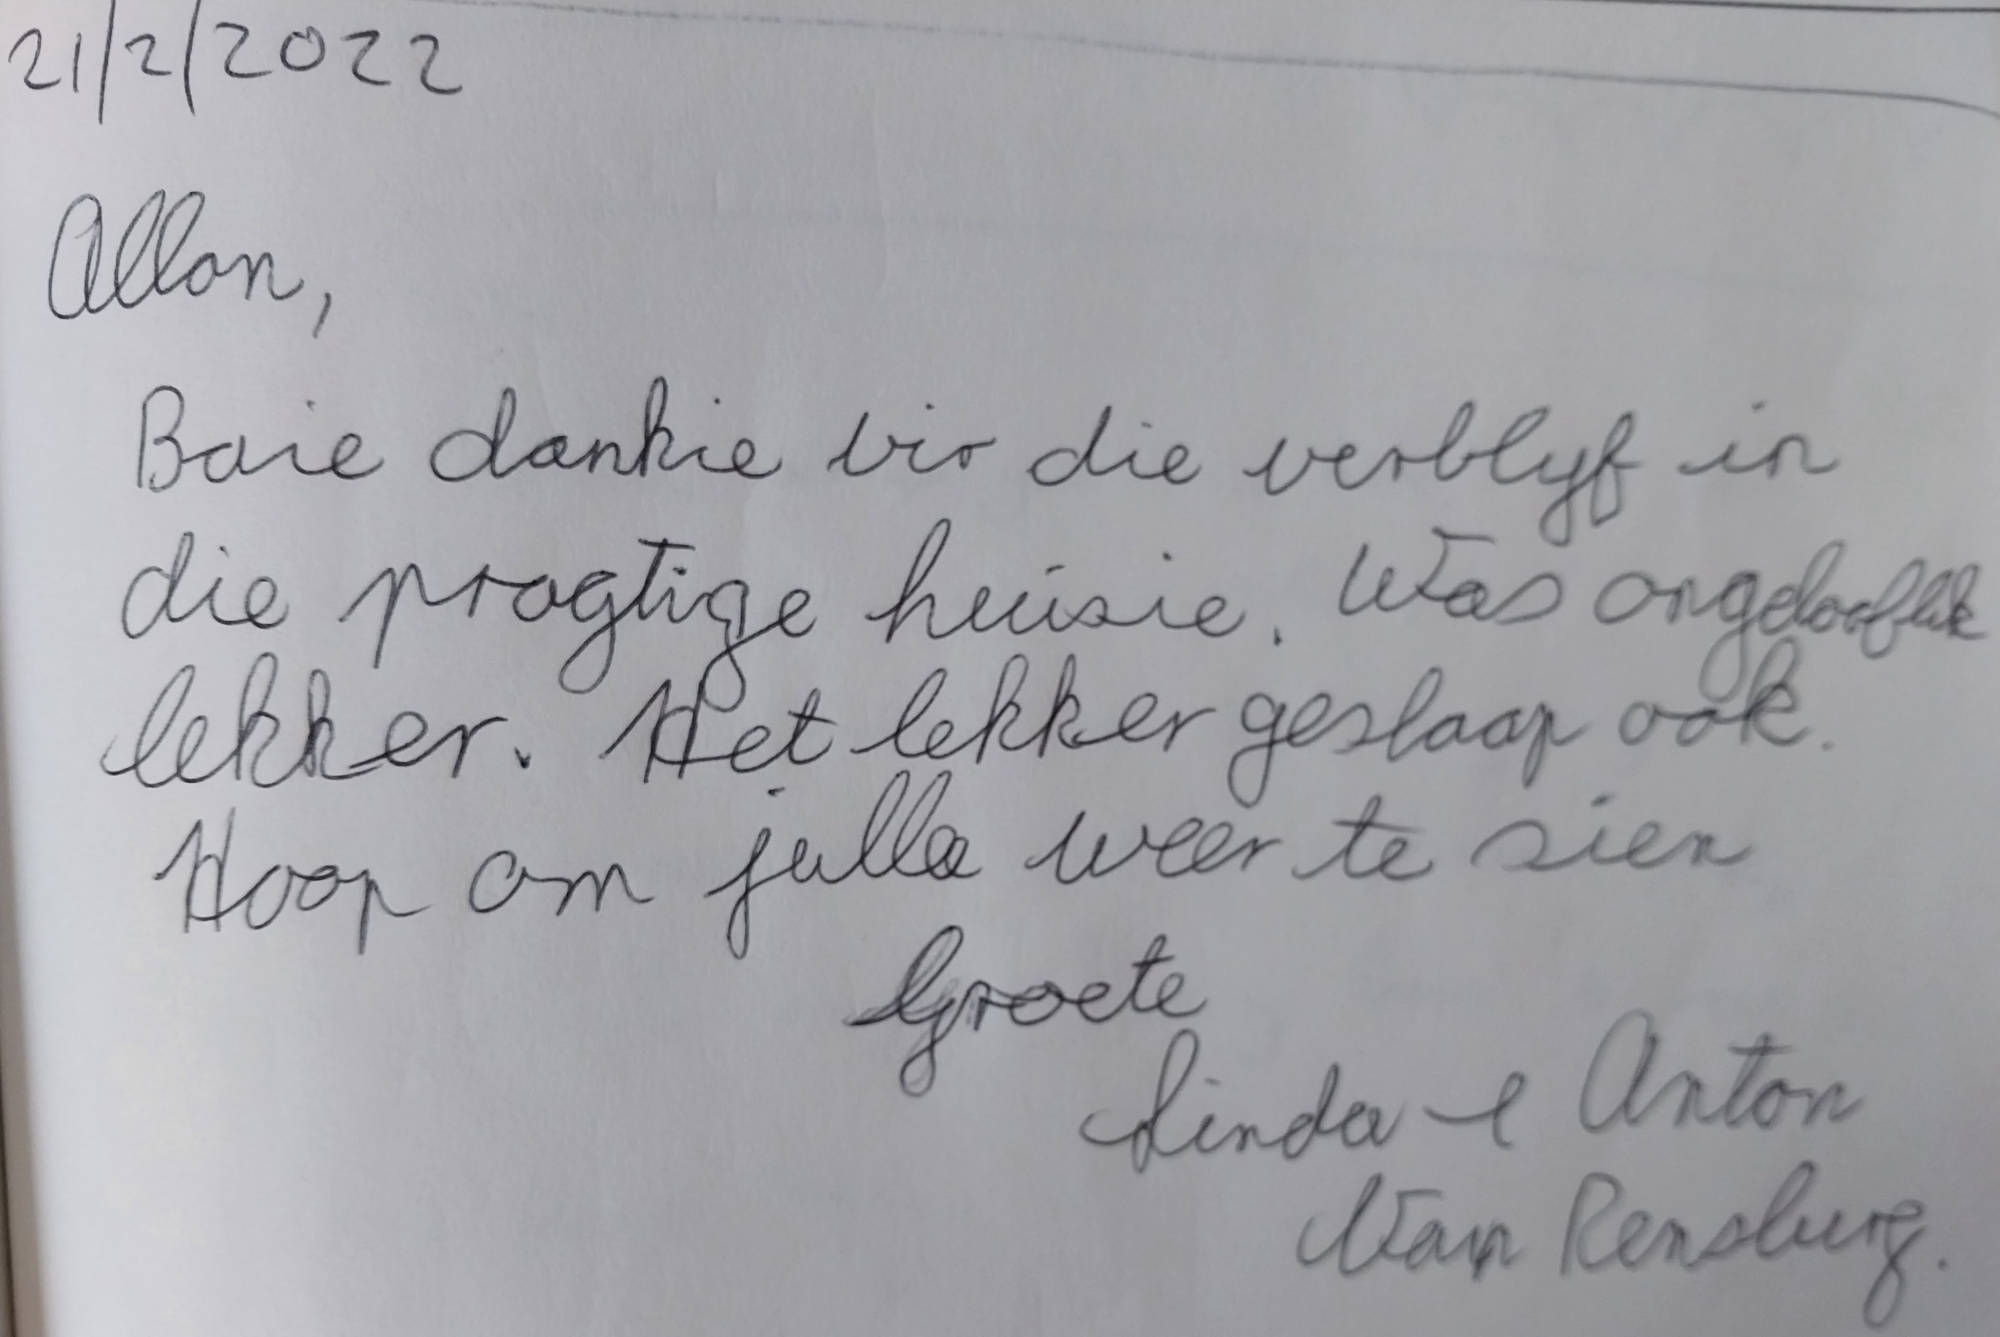 21/2/2022
Allan,
Baie dankie vir die verblyf in
die pragtige huisie. Was ongelooflik
lekker. Het lekker geslaap ook.
Hoop om julle weer te sien
Groete
Linda & Anton
Van Rensburg.